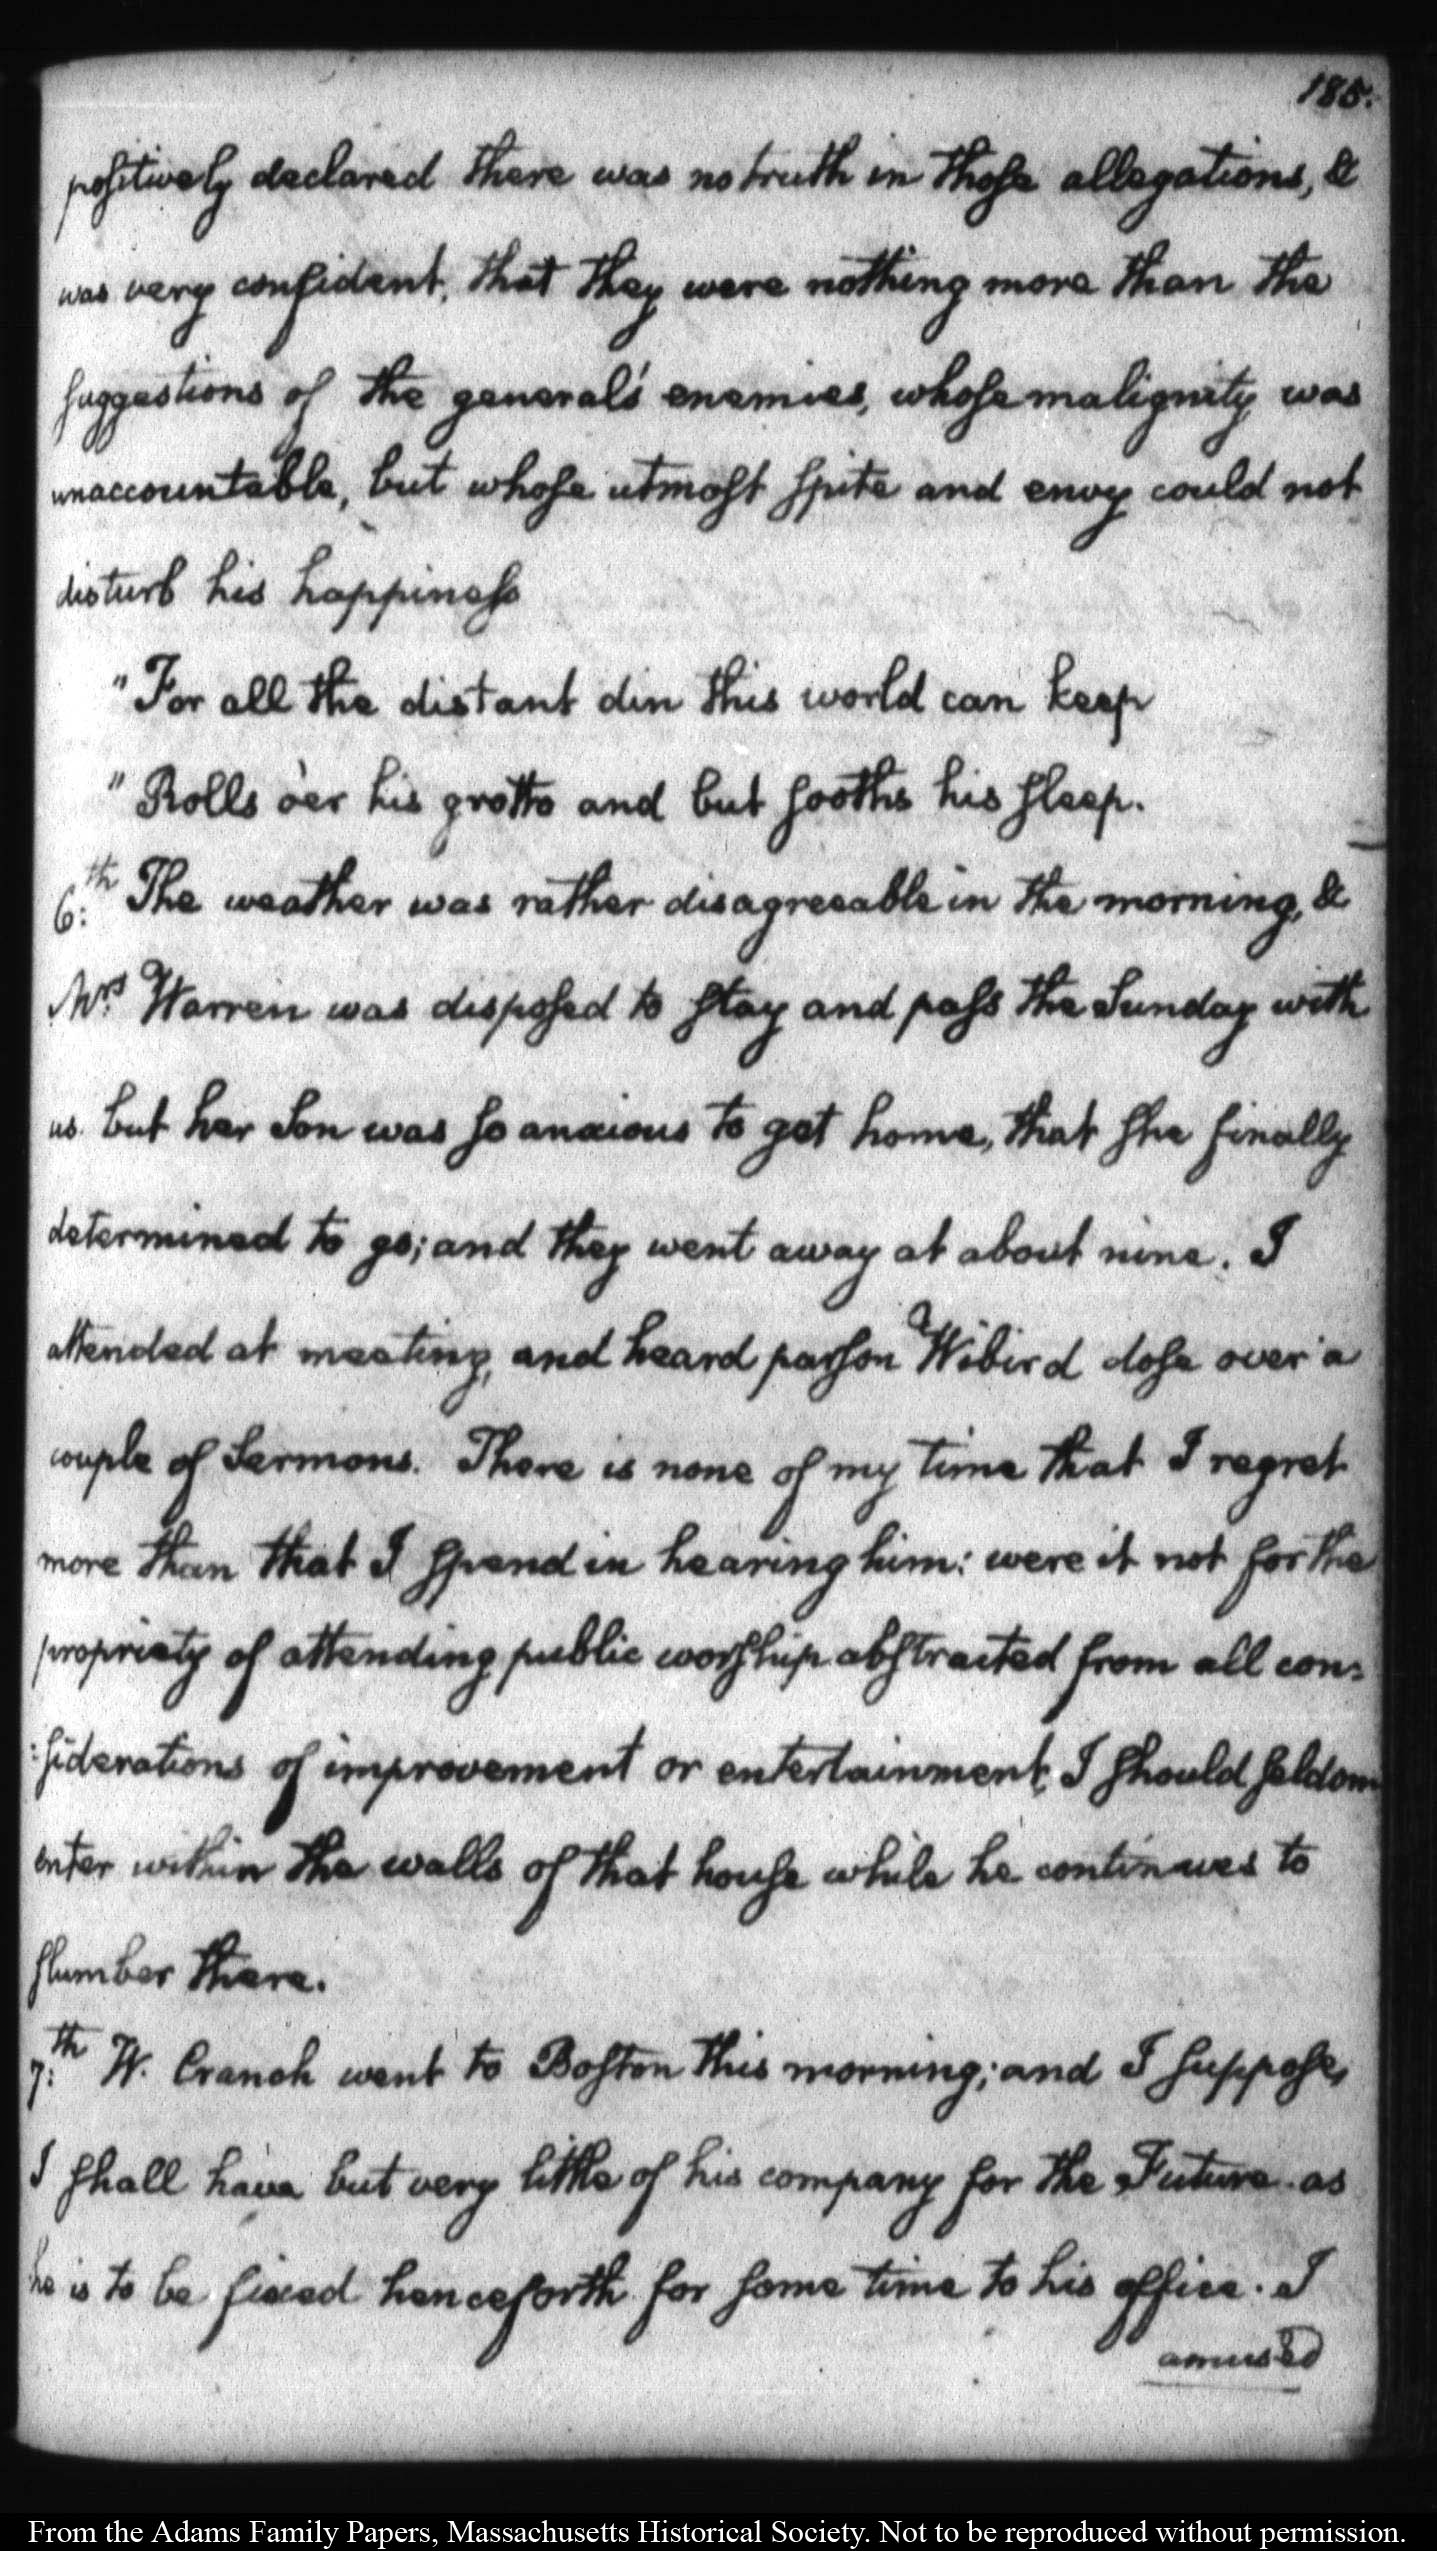 185.
positively declared there was no truth in those allegations, &
was very confident, that they were nothing more than the
suggestions of the general's enemies, whose malignity was
unaccountable, but whose utmost spite and envy could not
disturb his happiness
" For all the distant din this world can keep
" Rolls o'er his grotto and but sooths his sleep.
6:th The weather was rather disagreeable in the morning, &
Mrs. Warren was disposed to stay and pass the Sunday with
us. but her Son was so anxious to get home, that she finally
determined to go; and they went away at about nine. I
attended at meeting, and heard parson Wibird dose over a
couple of Sermons. There is none of my time that I regret
more than that I spend in hearing him: were it not for the
propriety of attending public worship abstracted from all con=
:siderations of improvement or entertainment, I should seldom
enter within the walls of that house while he continues to
slumber there.
7:th W. Cranch went to Boston this morning; and I suppose,
I shall have but very little of his company for the Future as
he is to be fixed henceforth for some time to his office. I
amused
From the Adams Family Papers, Massachusetts Historical Society. Not to be reproduced without permission.